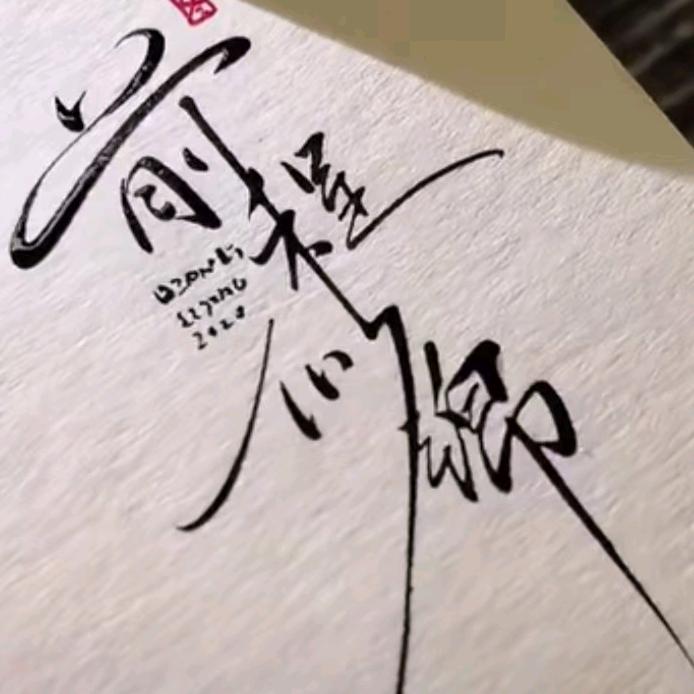 前程似锦
2020